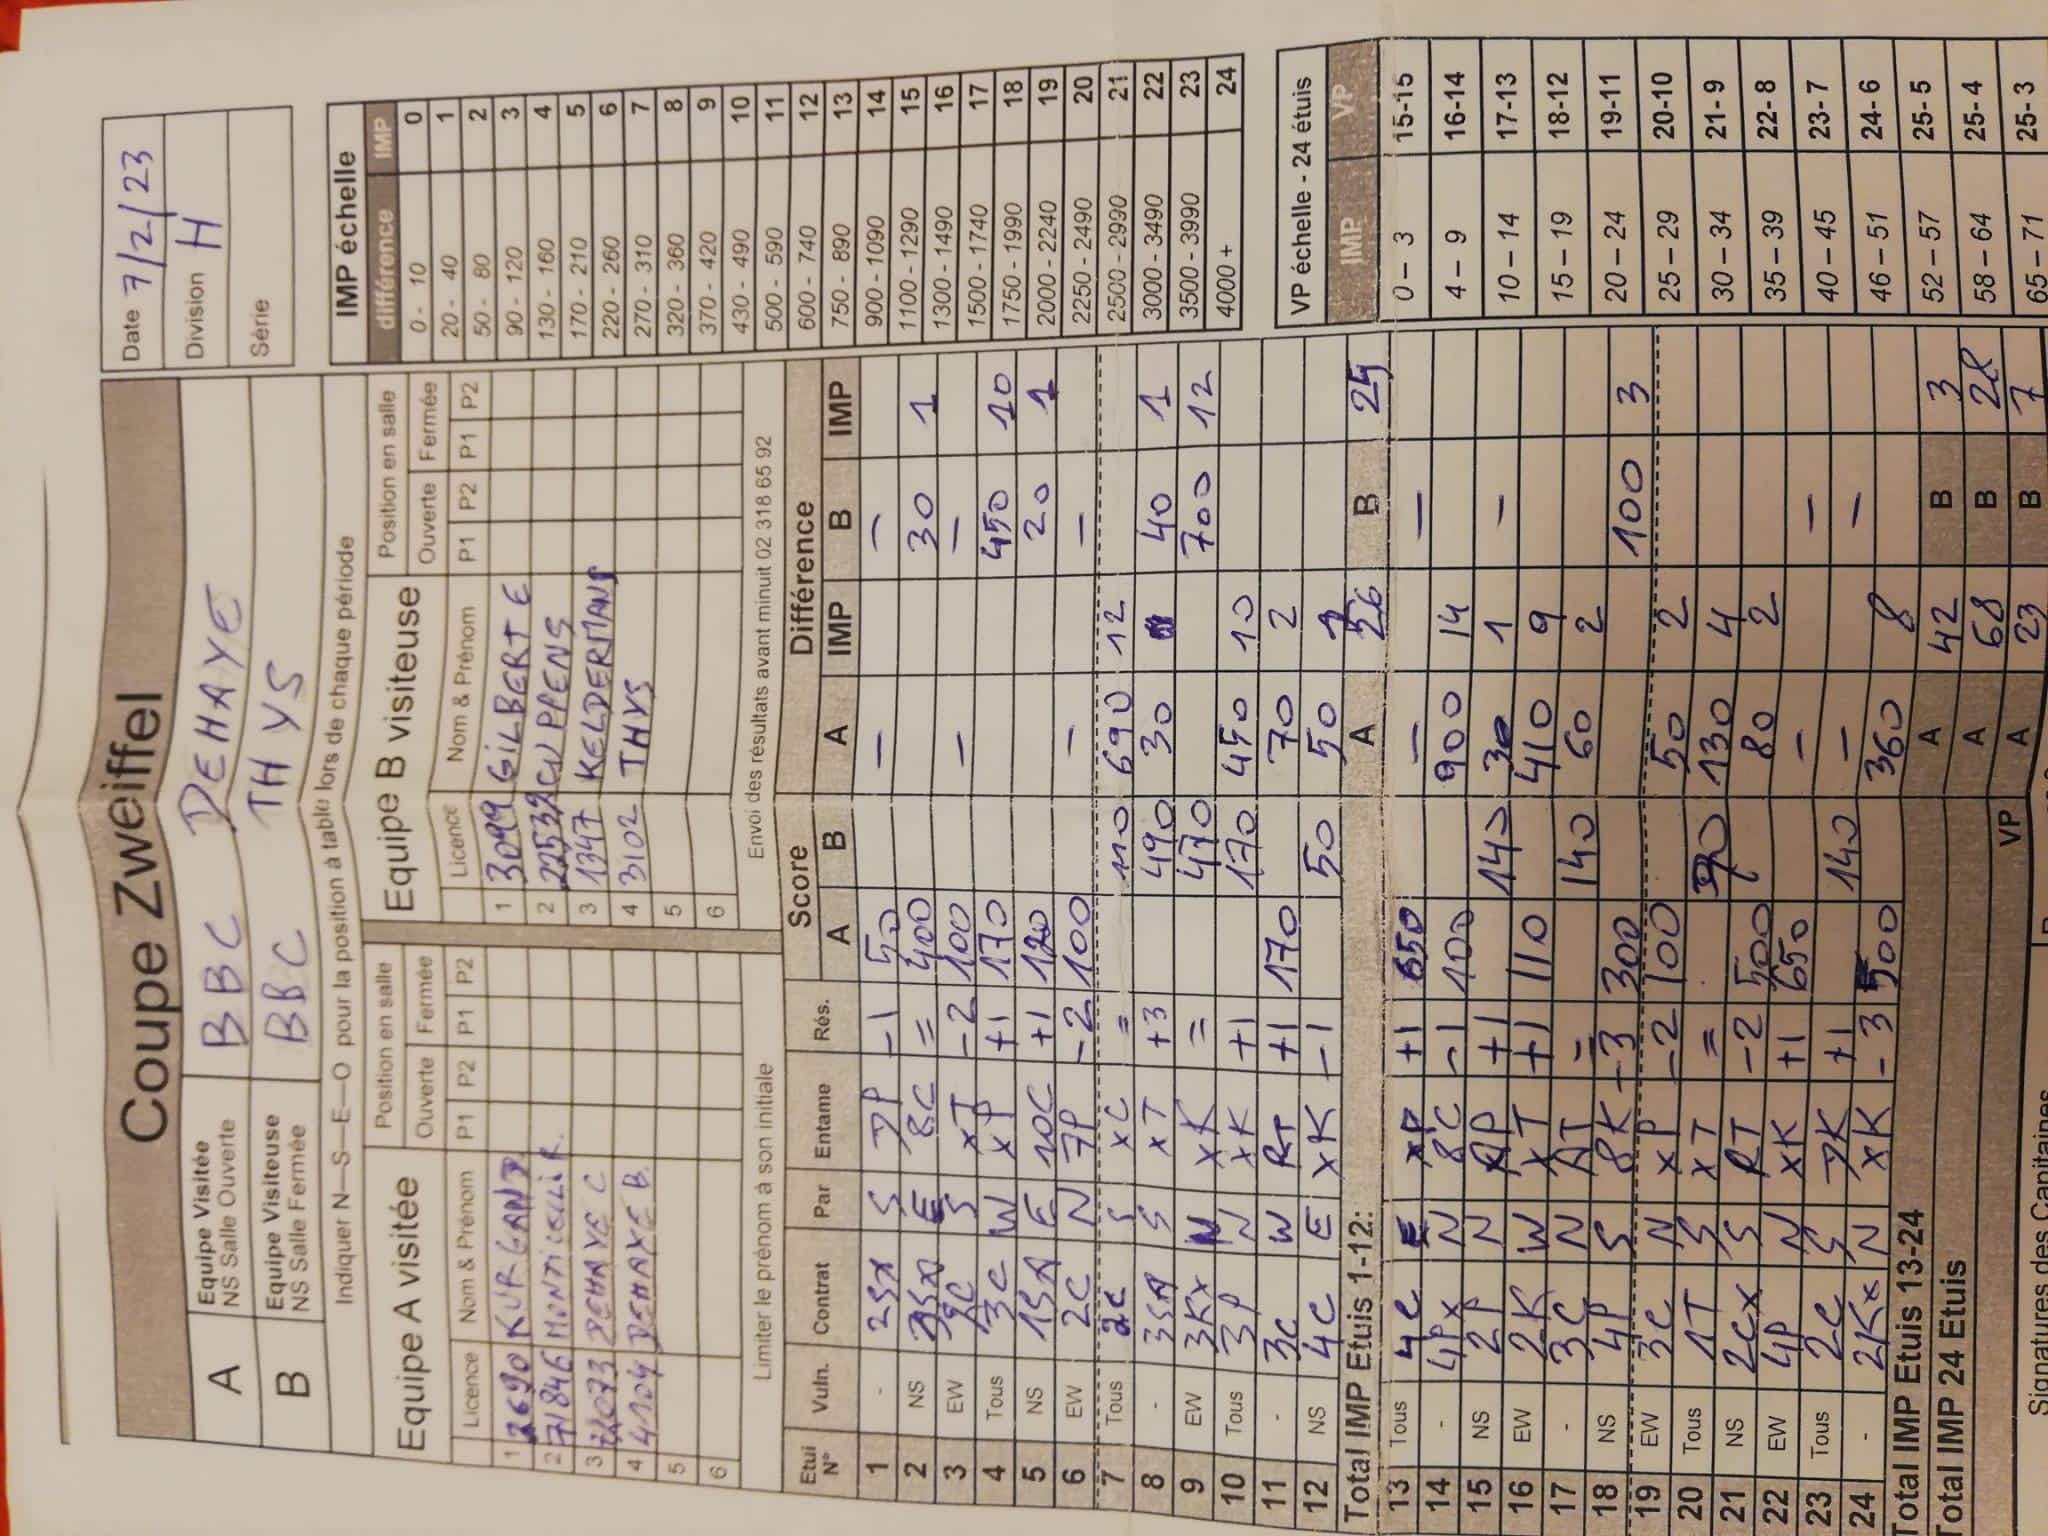 Coupe Zweiffel
Date 7/2/23
Division H
Série
A Equipe Visitée NS Salle Ouverte BBC DEHAYE
B Equipe Visiteuse NS Salle Fermée BBC THYS
Indiquer N—S—E—O pour la position à table lors de chaque période
Equipe A visitée Position en salle
Ouverte Fermée
Licence Nom & Prénom P1 P2 P1 P2
1 26690 KURGAN D
2 71846 MONTICELLI R.
3 DEHAYE C
4 4104 DEHAYE B.
5
6
Limiter le prénom à son initiale
Equipe B visiteuse Position en salle
Ouverte Fermée
Licence Nom & Prénom P1 P2 P1 P2
1 3099 GILBERT E
2 22532 CUPPENS
3 1347 KELDERMANS
4 3102 THYS
5
6
Envoi des résultats avant minuit 02 318 65 92
Score Différence
Etui N° Vuln. Contrat Par Entame Rés. A B A IMP B IMP
1 - S 7P -1 50 — —
2 NS E 8C = 400 30 1
3 EW S xT -2 100 — —
4 Tous 3C W xP +1 170 450 10
5 NS 1SA E 10C +1 120 20 1
6 EW 2C N 7P -2 100 — —
7 Tous 2C S xC = 110 690 12
8 - 3SA S xT +3 490 30 40 1
9 EW 3Kx N xK = 470 700 12
10 Tous 3P N xK +1 170 450 10
11 - 3C W RT +1 170 70 2
12 NS 4C E xK -1 50 50 1
Total IMP Etuis 1-12: A 26 B 25
13 Tous 4C E xP +1 650 — —
14 - 4Px N 8C -1 100 900 14
15 NS 2P N AP +1 140 30 1 —
16 EW 2K W xT +1 110 410 9
17 - 3C N AT = 140 60 2
18 NS 4P S 8K -3 300 100 3
19 EW 3C N xP -2 100 50 2
20 Tous 1T S xT = 130 4
21 NS 2Cx S RT -2 500 80 2
22 EW 4P N xK +1 650 — —
23 Tous 2C S 7K +1 140 — —
24 - 2Kx N xK -3 500 360 8
Total IMP Etuis 13-24 A 42 B 3
Total IMP 24 Etuis A 68 B 28
VP A 23 B 7
Signatures des Capitaines
IMP échelle
différence IMP
0 - 10 0
20 - 40 1
50 - 80 2
90 - 120 3
130 - 160 4
170 - 210 5
220 - 260 6
270 - 310 7
320 - 360 8
370 - 420 9
430 - 490 10
500 - 590 11
600 - 740 12
750 - 890 13
900 - 1090 14
1100 - 1290 15
1300 - 1490 16
1500 - 1740 17
1750 - 1990 18
2000 - 2240 19
2250 - 2490 20
2500 - 2990 21
3000 - 3490 22
3500 - 3990 23
4000 + 24
VP échelle - 24 étuis
IMP VP
0 – 3 15-15
4 – 9 16-14
10 – 14 17-13
15 – 19 18-12
20 – 24 19-11
25 – 29 20-10
30 – 34 21- 9
35 – 39 22- 8
40 – 45 23- 7
46 – 51 24- 6
52 – 57 25- 5
58 – 64 25- 4
65 – 71 25- 3